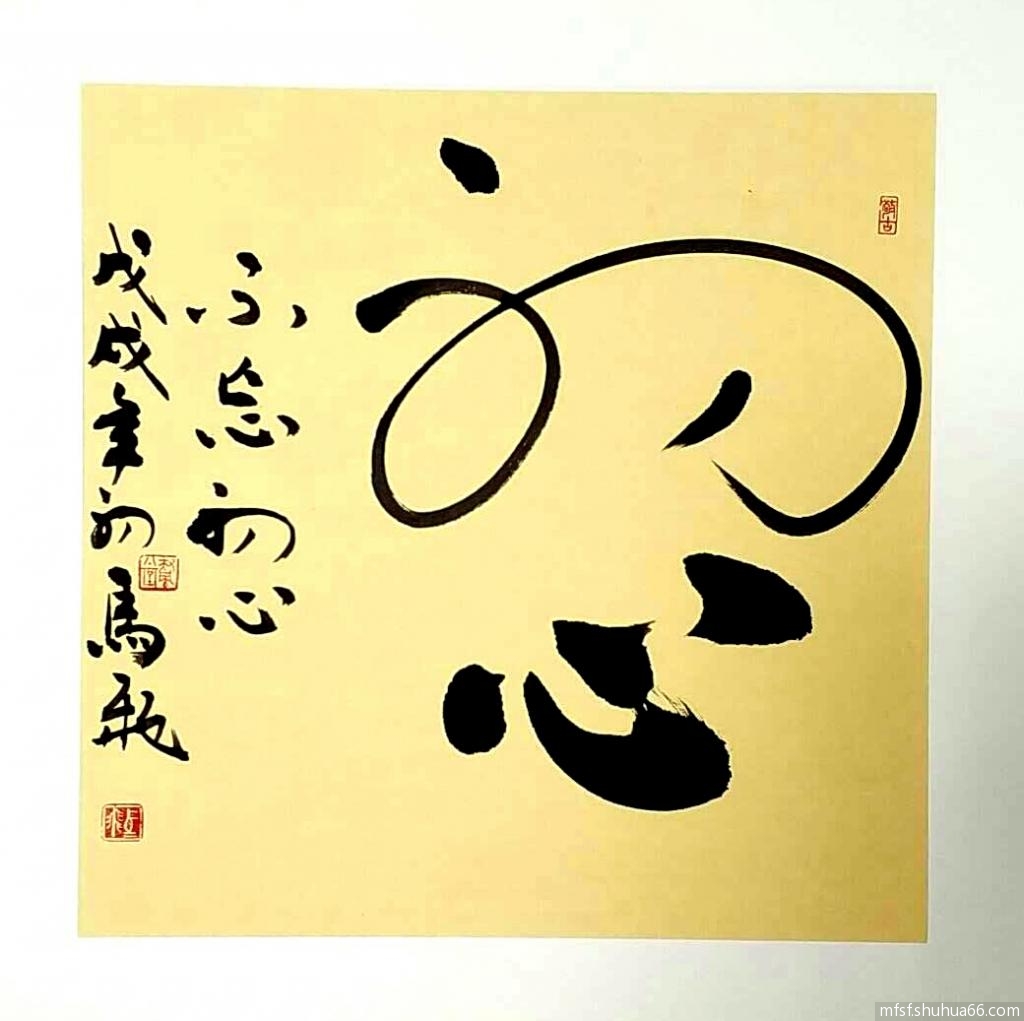 初心
不忘初心
戊戌年初馬飛
mfsf.shuhua66.com